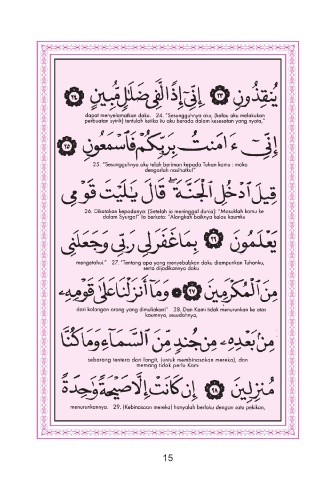 يُنقِذُونِ ٢٣ إِنِّيٓ إِذًا لَّفِي ضَلَٰلٍ مُّبِينٍ ٢٤
dapat menyelamatkan daku. 24. "Sesungguhnya aku, (kalau aku melakukan
perbuatan syirik) tentulah ketika itu aku berada dalam kesesatan yang nyata,"
إِنِّيٓ ءَامَنتُ بِرَبِّكُمْ فَٱسْمَعُونِ ٢٥
25. "Sesungguhnya aku telah beriman kepada Tuhan kamu : maka
dengarlah nasihatku!"
قِيلَ ٱدْخُلِ ٱلْجَنَّةَ ۖ قَالَ يَٰلَيْتَ قَوْمِي
26. Dikatakan kepadanya: (Setelah ia meninggal dunia) "Masuklah kamu ke
dalam Syurga!" Ia berkata: "Alangkah baiknya kalau kaumku
يَعْلَمُونَ ٢٦ بِمَا غَفَرَ لِي رَبِّي وَجَعَلَنِي
mengetahui." 27. "Tentang apa yang menyebabkan daku diampunkan Tuhanku,
serta dijadikannya daku
مِنَ ٱلْمُكْرَمِينَ ٢٧ وَمَآ أَنزَلْنَا عَلَىٰ قَوْمِهِۦ
dari kalangan orang yang dimuliakan!" 28. Dan Kami tidak menurunkan ke atas
kaumnya, sesudahnya,
مِنۢ بَعْدِهِۦ مِن جُندٍ مِّنَ ٱلسَّمَآءِ وَمَا كُنَّا
sebarang tentera dari langit, (untuk membinasakan mereka), dan
memang tidak perlu Kami
مُنزِلِينَ ٢٨ إِن كَانَتْ إِلَّا صَيْحَةً وَٰحِدَةً
menurunkannya. 29. (Kebinasaan mereka) hanyalah berlaku dengan satu pekikan,
15